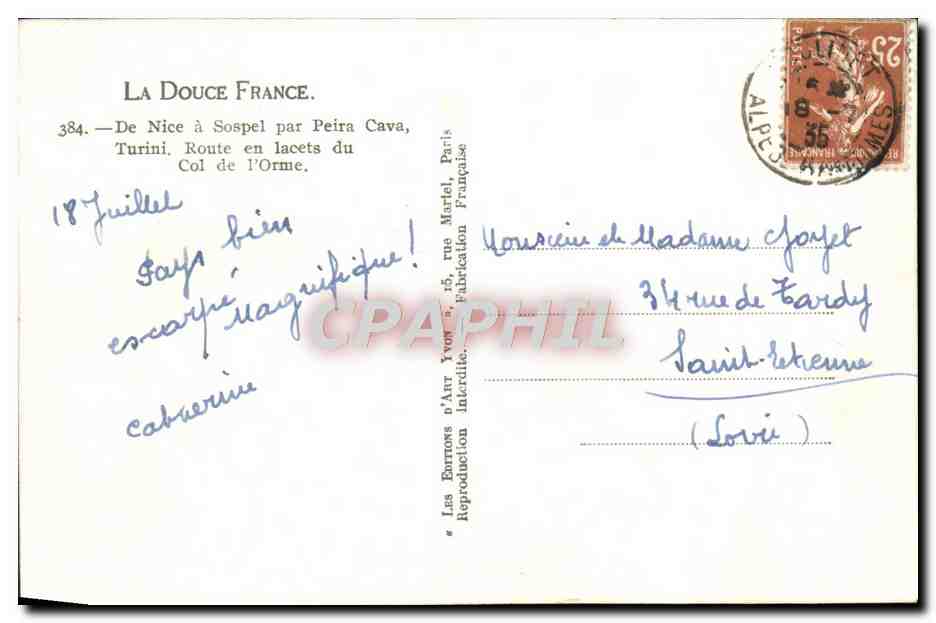 LA DOUCE FRANCE.
384. — De Nice à Sospel par Peira Cava,
Turini. Route en lacets du
Col de l'Orme.
18 Juillet
Pays bien
escarpé
Magnifique !
Catherine
« LES EDITIONS D'ART YVON », 15, rue Martel, Paris
Reproduction Interdite. Fabrication Française
25
POSTES
ALPES MMES
18 -
35
Monsieur et Madame
34 rue de Tardy
Saint-Etienne
(Loire)
CPAPHIL